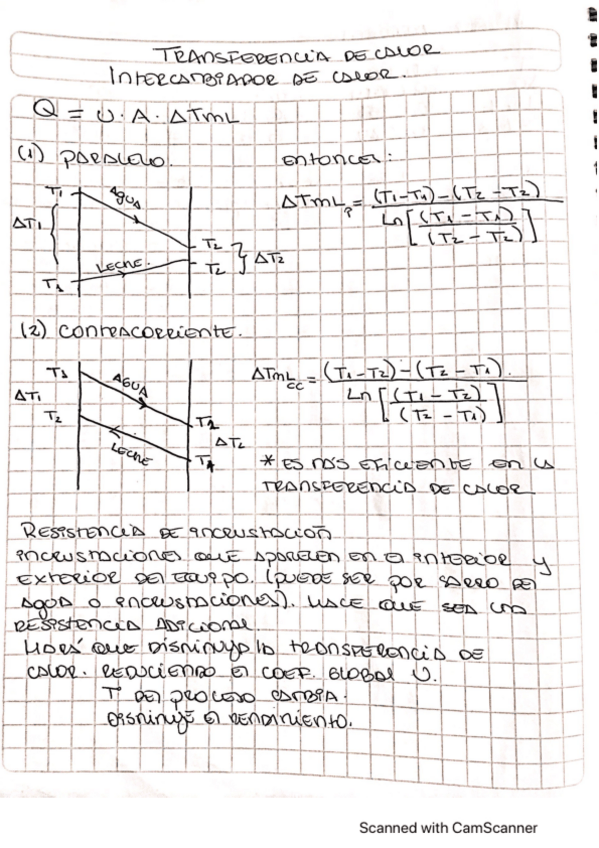 TRANSFERENCIA DE CALOR
INTERCAMBIADOR DE CALOR.
Q = U · A · ΔTmL
(1) PARALELO.
T1
AGUA
ΔT1
T2
T2
ΔT2
LECHE.
T1
entonces:
ΔTmLp = (T1-T1) - (T2 - T2)
Ln[(T1 - T1)
(T2 - T2)]
(2) CONTRACORRIENTE.
T1
AGUA
ΔT1
T2
T2
ΔT2
LECHE
T1
ΔTmLcc = (T1 - T2) - (T2 - T1).
Ln[(T1 - T2)
(T2 - T1)]
* ES MÁS EFICIENTE EN LA
TRANSFERENCIA DE CALOR
RESISTENCIA DE INCRUSTACIÓN
INCRUSTACIONES QUE APARECEN EN EL INTERIOR Y
EXTERIOR DEL EQUIPO. (PUEDE SER POR SARRO DEL
AGUA O INCRUSTACIONES). HACE QUE SEA UNA
RESISTENCIA ADICIONAL
HARÁ QUE DISMINUYA LA TRANSFERENCIA DE
CALOR. REDUCIENDO EL COEF. GLOBAL U.
T° DEL PROCESO CAMBIA.
DISMINUYE EL RENDIMIENTO.
Scanned with CamScanner